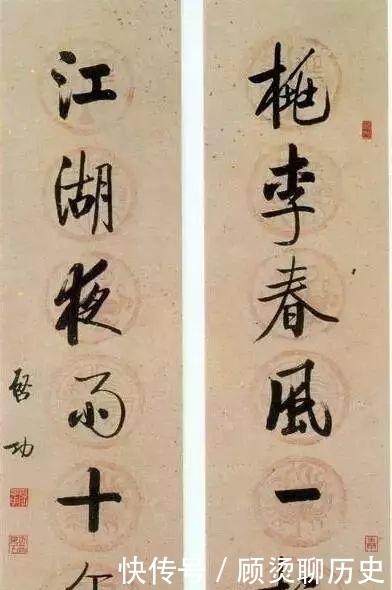 桃李春風一
江湖夜雨十
啓功
快传号／顾烫聊历史